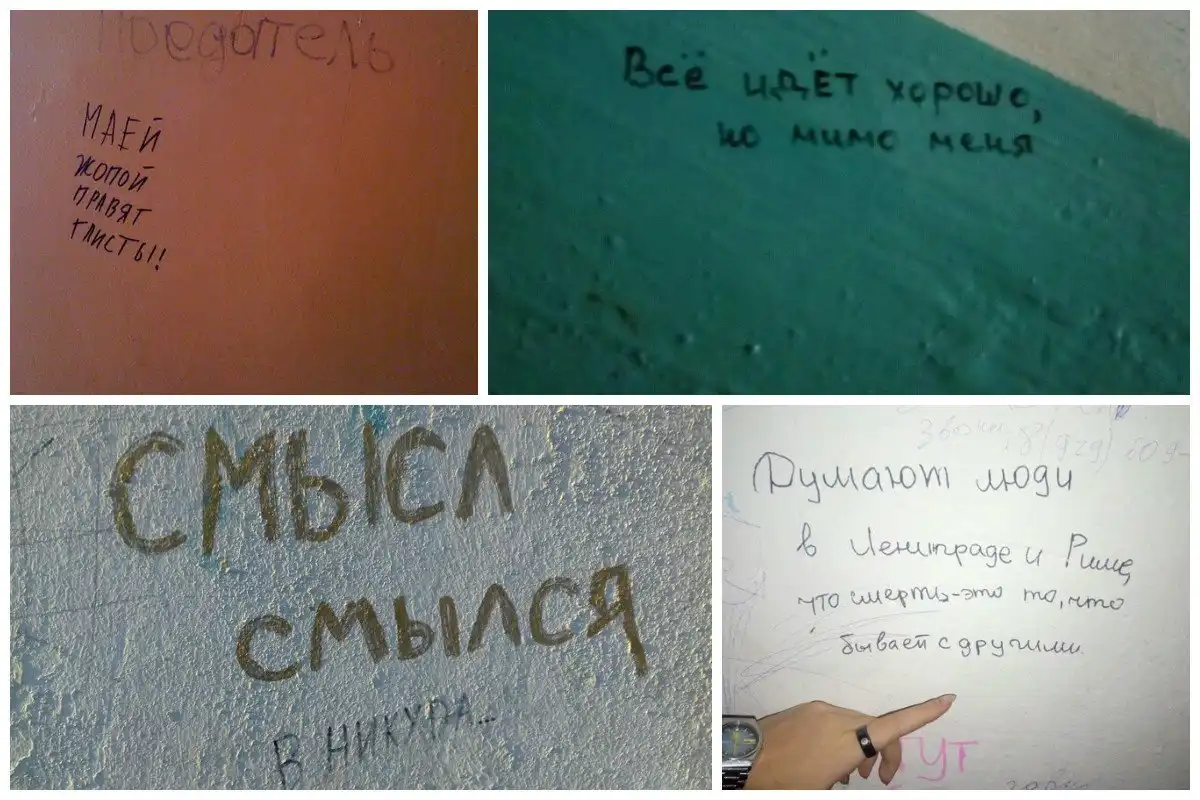 МАЕЙ
ЖОПОЙ
ПРАВЯТ
ГЛИСТЫ!
Всё идёт хорошо,
но мимо меня
СМЫСЛ
СМЫЛСЯ
В НИКУДА...
Думают люди
в Ленинграде и Риме,
что смерть-это то, что
бывает с другими.
ТУТ